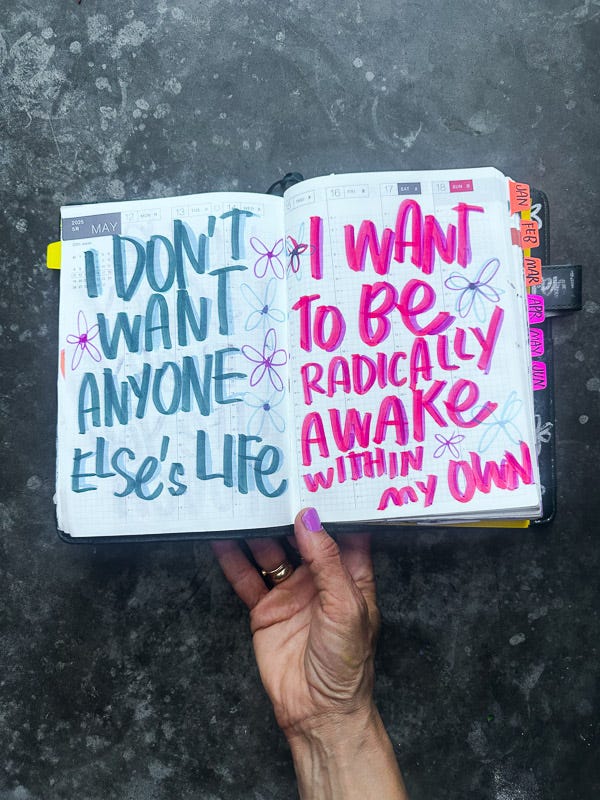 2025
5月 MAY
12 MON 月
13 TUE
14 WED
I DON'T
WANT
ANYONE
ELSE'S LIFE
16 FRI
17 SAT
18 SUN
I WANT
TO BE
RADICALLY
AWAKE
WITHIN
MY OWN
JAN
FEB
MAR
APR
MAY
JUN